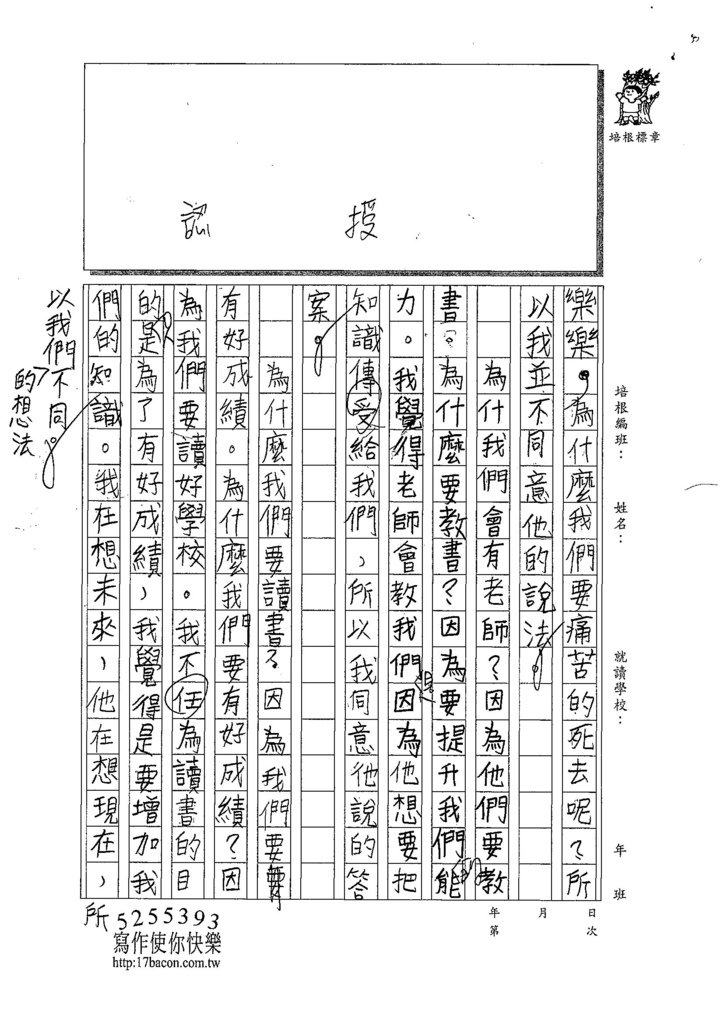 培根標章
授
認
培根編班：
姓名：
就讀學校：
年
班
日
月
年
次
第
樂樂。為什麼我們要痛苦的死去呢？所
以我並不同意他的說法。
為什我們會有老師？因為他們要教
書。為什麼要教書？因為要提升我們的能
力。我覺得老師會教我們是因為他想要把
知識傳受給我們，所以我同意他說的答
案。
為什麼我們要讀書？因為我們要
有好成績。為什麼我們要有好成績？因
為我們要讀好學校。我不任為讀書的目
的是為了有好成績，我覺得是要增加我
們的知識。我在想未來，他在想現在，
所
以我們不同
的想法
5255393
寫作使你快樂
http:17bacon.com.tw